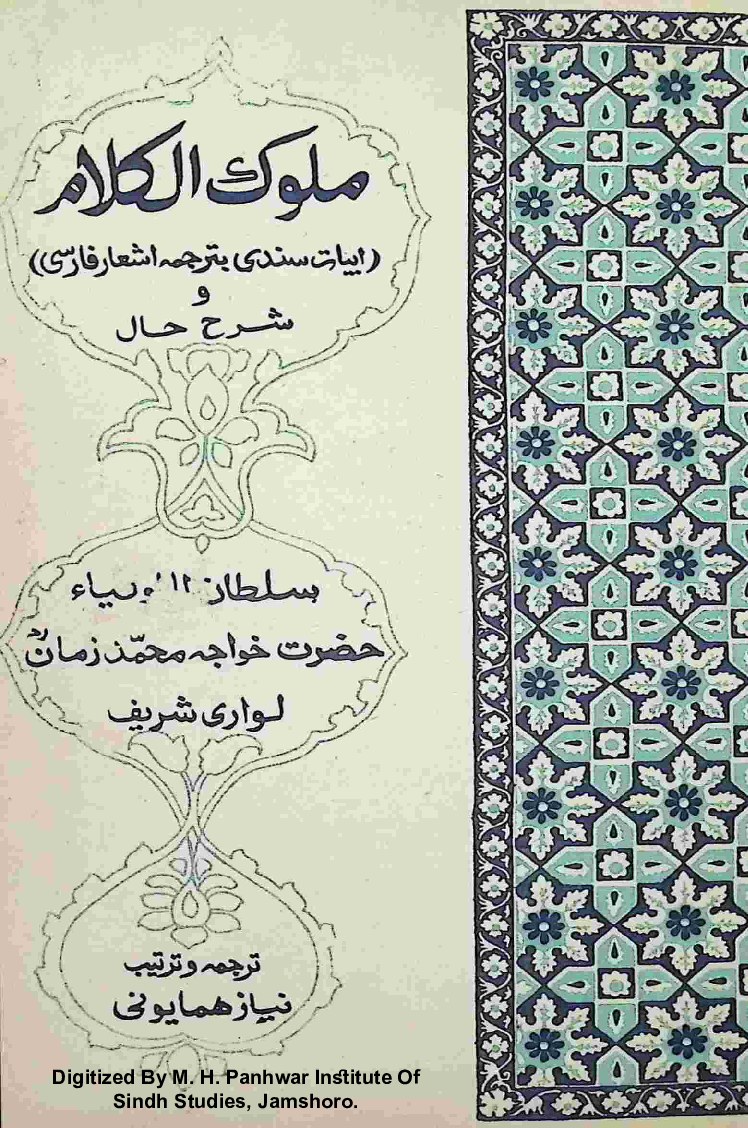 ملوك الكلام
(ابيات سندی بترجمه اشعار فارسی))
و
شرح حال
سلطان الاولياء
حضرت خواجہ محمّد زمان رح
لواری شریف
ترجمہ و ترتیب
نیاز همایونی
Digitized By M. H. Panhwar Institute Of
Sindh Studies, Jamshoro.